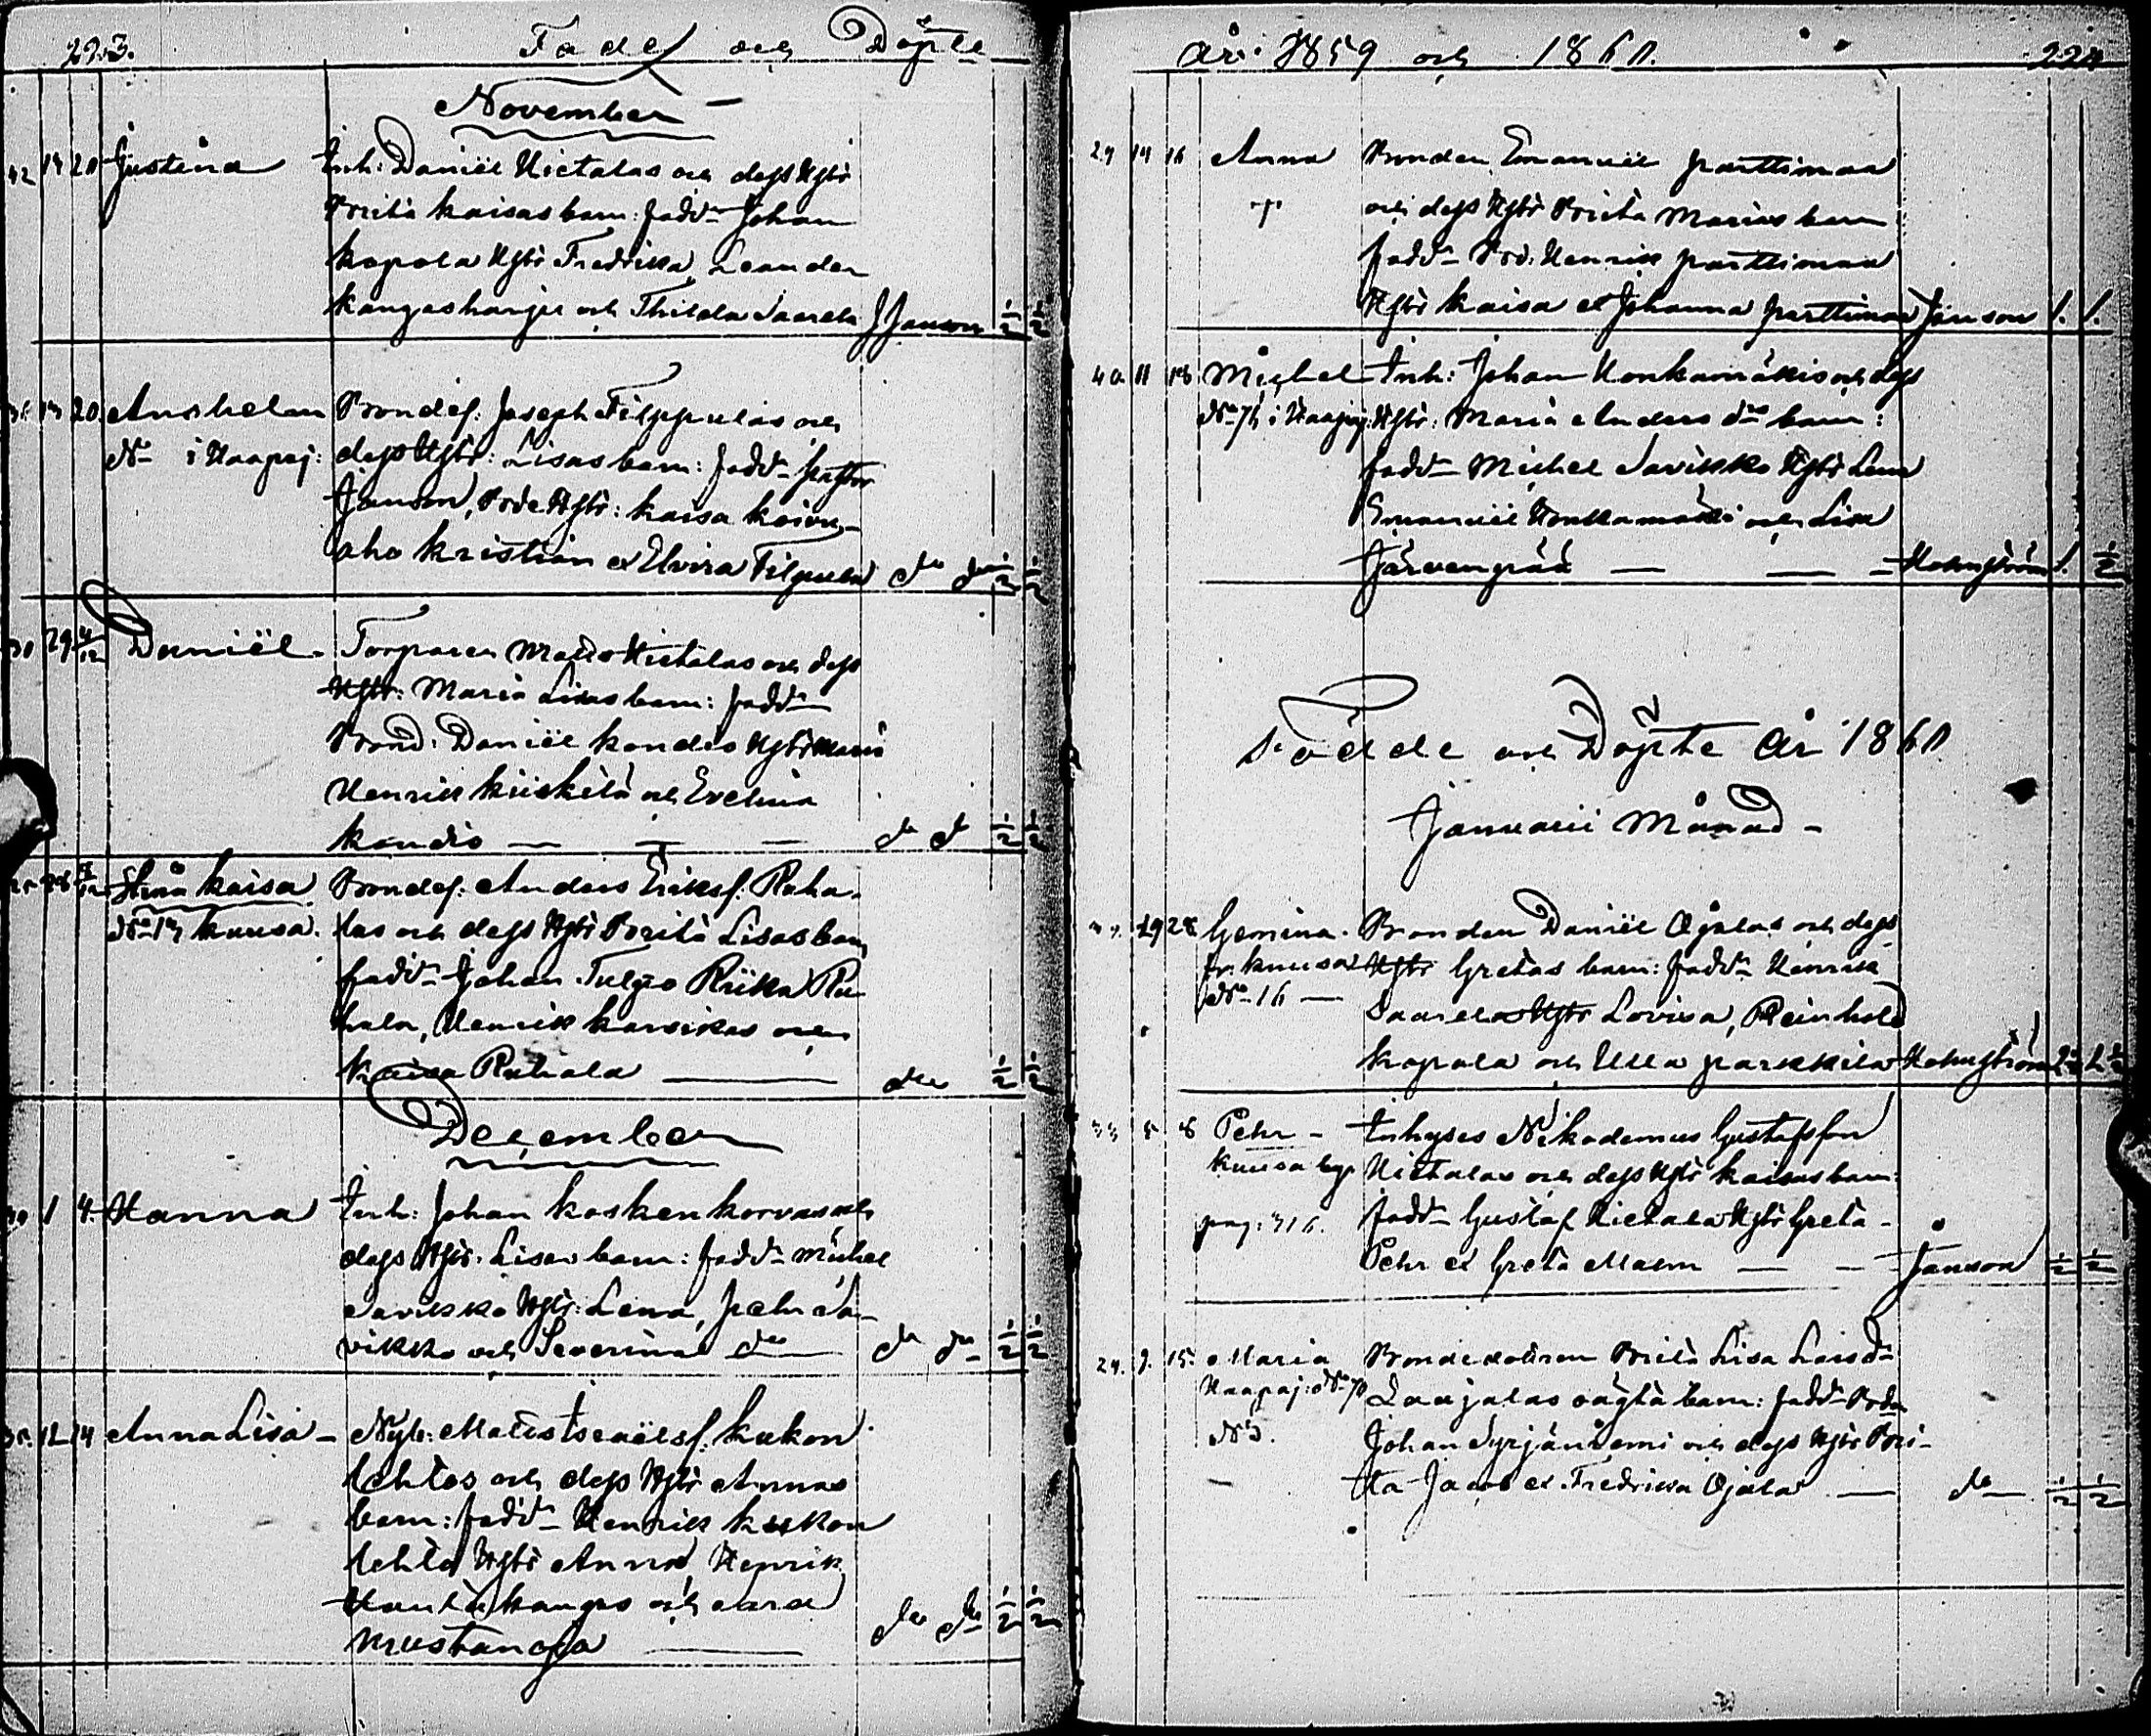 223. Födde och Döpte
November
42 14 20 Gustava Inh: Daniël Hietalas och dess Hstr
Brita Kaisas barn: fadd. Johan
Kopola Hstr Fredrika, Leander
Kangasharju och Thilda Saarela J Janson ½ ½
13 20 Anshelm Bondes: Joseph Filppulas och
No i Haapaj: dess Hstr: Lisas barn: fadd. pastor
Janson, Bde Hstr: Kaisa Koivu-
aho Kristian et Elvira Filpula do do ½ ½
30 29 4/12 Daniël Torparen Matts Hietalas och dess
Hstr: Maria Lisas barn: fadd.
Bond: Daniël Kondio Hstr Maria
Henrik Kiiskilä och Evelina
Kondio do do ½ ½
Stina Kaisa Bondes. Anders Eriks. Ruha-
No 13 Kuusa. las och dess Hstr Brita Lisas barn
fadd. Johan Tulpo Riikka Ru
hala, Henrik Karsikas och
Kaisa Ruhala do ½ ½
December
30 1 4. Hanna Inh: Johan Koskenkorvas och
dess Hstr. Lisas barn: fadd. Michel
Savikko Hstr: Lena, Pehr Sa-
vikko och Severina do do do ½ ½
35. 12 14 Anna Lisa Nyb: Matts Israëls. Kukon
lehtos och dess Hstr Annas
barn: fadd. Henrik Kukon
lehto Hstr Anna, Henrik
Hautakangas och Sara
Mustanoja do do ½ ½
År 1859 och 1860. 224
29 14 16 Anna Bonden Emanuel Parttimaa
och dess Hstr Brita Marias barn
fadd. Bd. Henrik Parttimaa
Hstr Kaisa et Johanna Parttimaa Janson 1. 1.
40 11 18 Michel Inh: Johan Honkamäkis och dess
No 76 i Haapaj: Hstr: Maria Anders dr barn:
fadd. Michel Savikko Hstr Lena
Emanuel Honkamäki och Lisa
Järvenpää Holmström 1. ½
Födde och Döpte År 1860
Januarii Månad
19 28 Gemina Bonden Daniël Ojalas och dess
fr. Kuusa Hstr Gretas barn: fadd. Henrik
No 16 Saarela Hstr Lovisa, Reinhold
Kopola och Ulla Parkkila Holmström
33 5 8 Pehr Inhyses Nikodemus Gustafsson
Kuusa by Hietalas och dess Hstr Kaisas barn:
pag: 316. fadd. Gustaf Hietala Hstr Greta
Pehr et Greta Malm Janson ½ ½
24. 9. 15. Maria Bondedottren Brita Lisa Lars dr
Haapaj: No 70 Laajalas oägta barn: fadd. Bdn
No 5. Johan Syrjäniemi och dess Hstr Bri-
ta Jacob et Fredrika Ojala do ½ ½